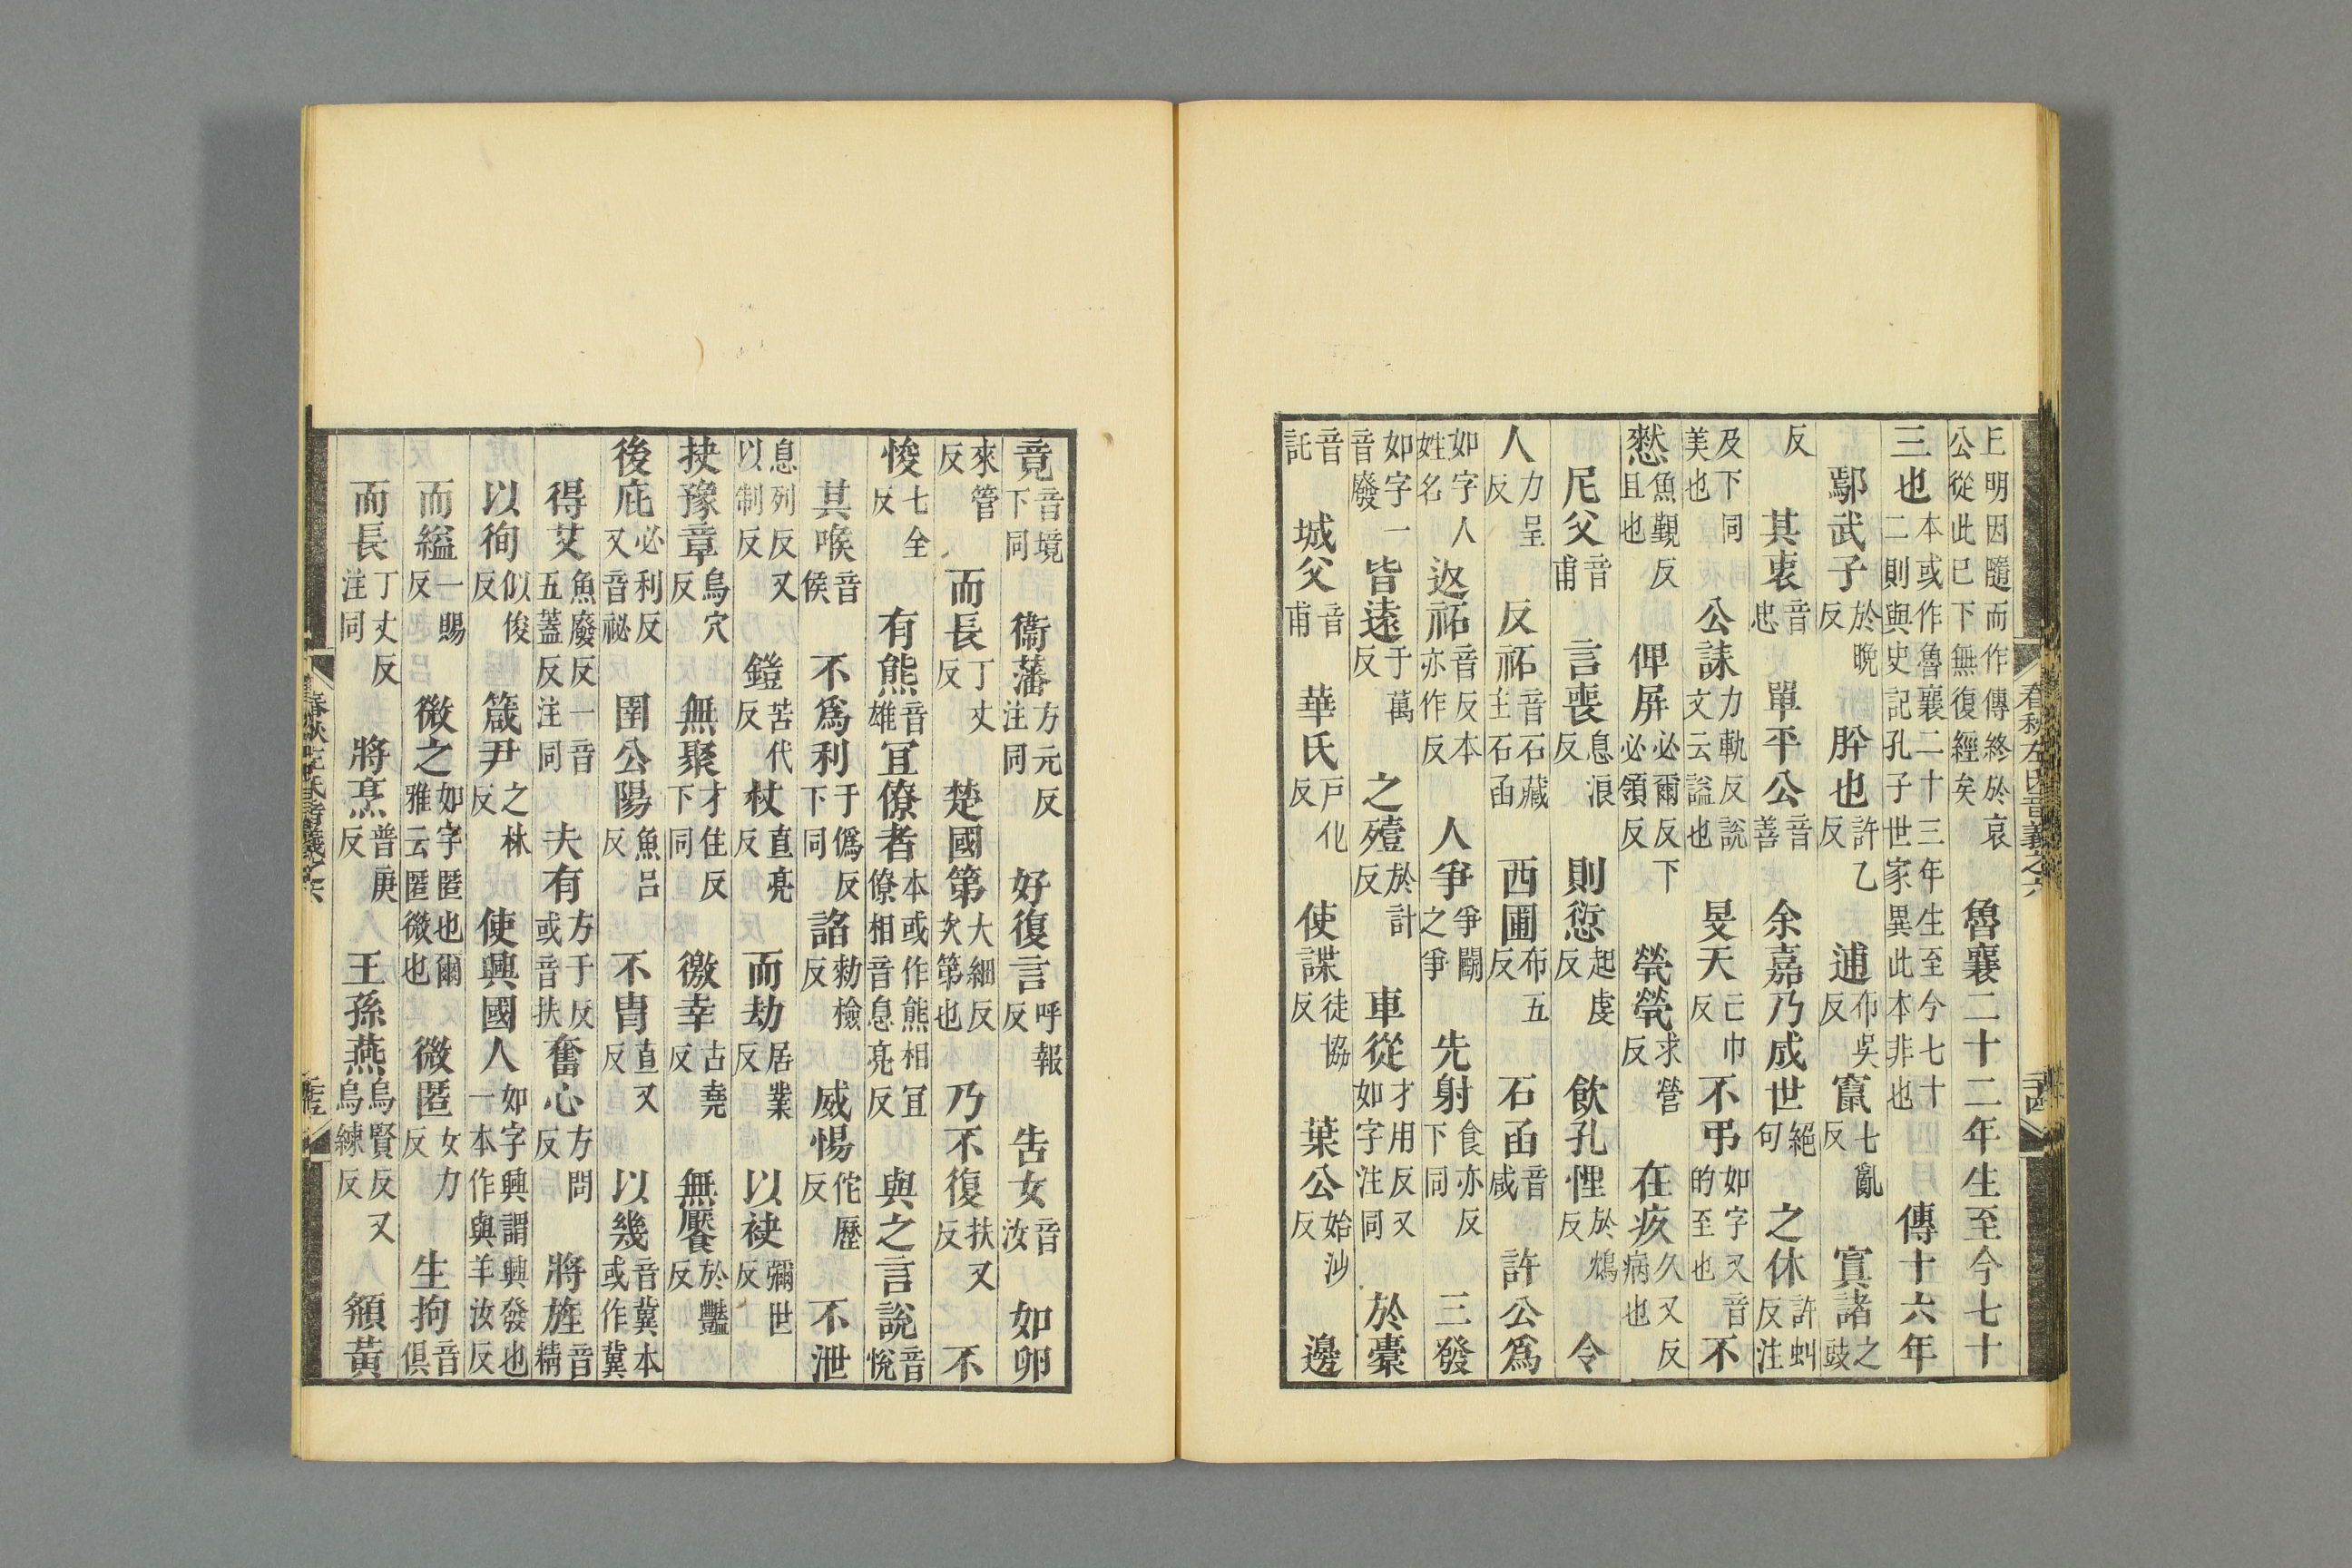 丘明因隨而作傳終於哀公從此已下無復經矣 魯襄二十二年生至今七十
三也本或作魯襄二十三年生至今七十二則與史記孔子世家異此本非也 傳十六年
鄢武子於晚反 肸也許乙反 逋布吳反 竄七亂反 寘諸之豉
反 其衷音忠 單平公音善 余嘉乃成世絕句 之休許虯反注
及下同美也 公誄力軌反說文云謚也 旻天亡巾反 不弔如字又音的至也 不
憖魚覲反且也 俾屏必爾反下必領反 煢煢求營反 在疚久又反病也
尼父音甫 言喪息浪反 則愆起虔反 飲孔悝於鴆反 令
人力呈反 反祏音石藏主石函 西圃布五反 石函音咸 許公爲
如字人姓名 返祏音反本亦作反 人爭爭鬭之爭 先射食亦反下同 三發
如字一音廢 皆遠于萬反 之殪於計反 車從才用反又如字注同 於橐
音託 城父音甫 華氏戶化反 使諜徒協反 葉公始涉反 邊
春秋左氏音義之六
竟音境下同 衞藩方元反注同 好復言呼報反 告女音汝 如卵
來管反 而長丁丈反 楚國第大細反次第也 乃不復扶又反 不
悛七全反 有熊音雄 宜僚者本或作熊相宜僚相音息亮反 與之言說音悅
其喉音侯 不爲利于僞反下同 諂勑檢反 威惕佗歷反 不泄
息列反又以制反 鎧苦代反 杖直亮反 而劫居業反 以袂彌世反
抉豫章烏穴反 無聚才住反下同 徼幸古堯反 無饜於豔反
後庇必利反又音祕 圉公陽魚呂反 不冑直又反 以幾音冀本或作冀
得艾魚廢反一音五蓋反注同 夫有方于反或音扶 奮心方問反 將旌音精
以徇似俊反 箴尹之林反 使興國人如字興謂興發也一本作與羊汝反
而縊一賜反 微之如字匿也爾雅云匿微也 微匿女力反 生拘音俱
而長丁丈反注同 將烹普庚反 王孫燕烏賢反又烏練反 頯黃
春秋左氏音義之六